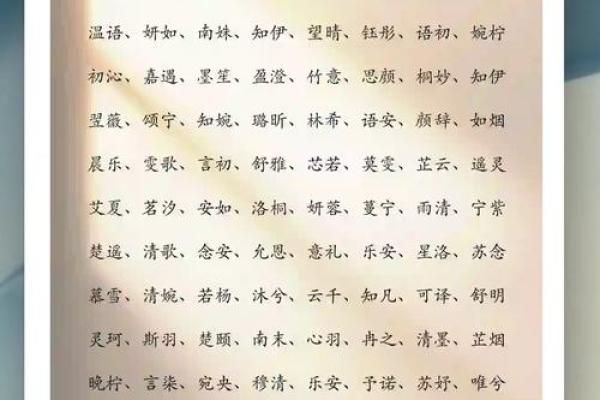 温语、妍如、南姝、知伊、望晴、钰彤、语初、婉柠
初沁、嘉遇、墨笙、盈澄、竹意、思颜、桐妙、知伊
翌薇、颂宁、知婉、璐昕、林希、语安、颜辞、如烟
晨乐、雯歌、言初、舒雅、芯若、莫雯、芷云、遥灵
艾夏、茗汐、安如、洛桐、妍蓉、蔓宁、雨清、宁紫
楚遥、清歌、念安、允恩、意礼、乐安、星洛、苏念
慕雪、清婉、若杨、沐兮、云千、知凡、可译、舒明
灵珂、斯羽、楚颐、南末、心羽、冉之、清墨、芷烟
晚柠、言柒、宛央、穆清、乐安、予诺、苏妤、唯兮